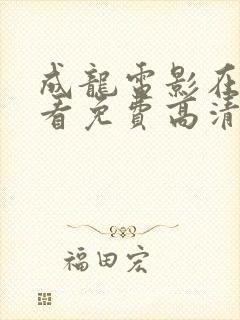 成龍雷影在
看免費高清
福田宏